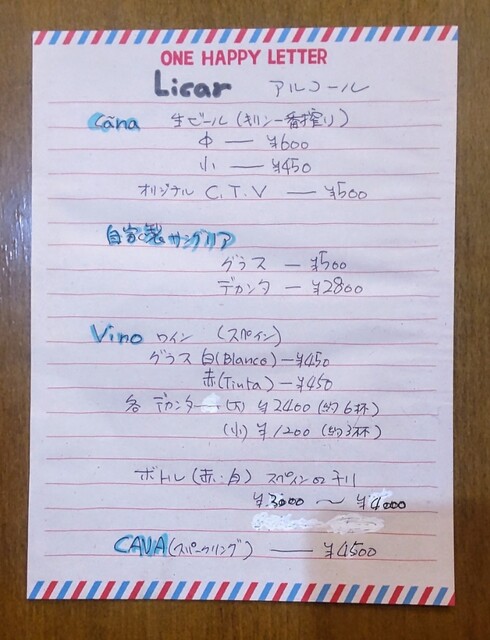 ONE HAPPY LETTER
Licar アルコール
Cãna 生ビール (キリン一番搾り)
中 — ¥600
小 — ¥450
オリジナル C.T.V — ¥500
自家製サングリア
グラス — ¥500
デカンタ — ¥2800
Vino ワイン (スペイン)
グラス 白(Blanco) — ¥450
赤(Tinta) — ¥450
各 デカンター (大) ¥2400 (約6杯)
(小) ¥1200 (約3杯)
ボトル (赤・白) スペイン チリ
¥3000 ~ ¥4000
CAVA (スパークリング) — ¥4500